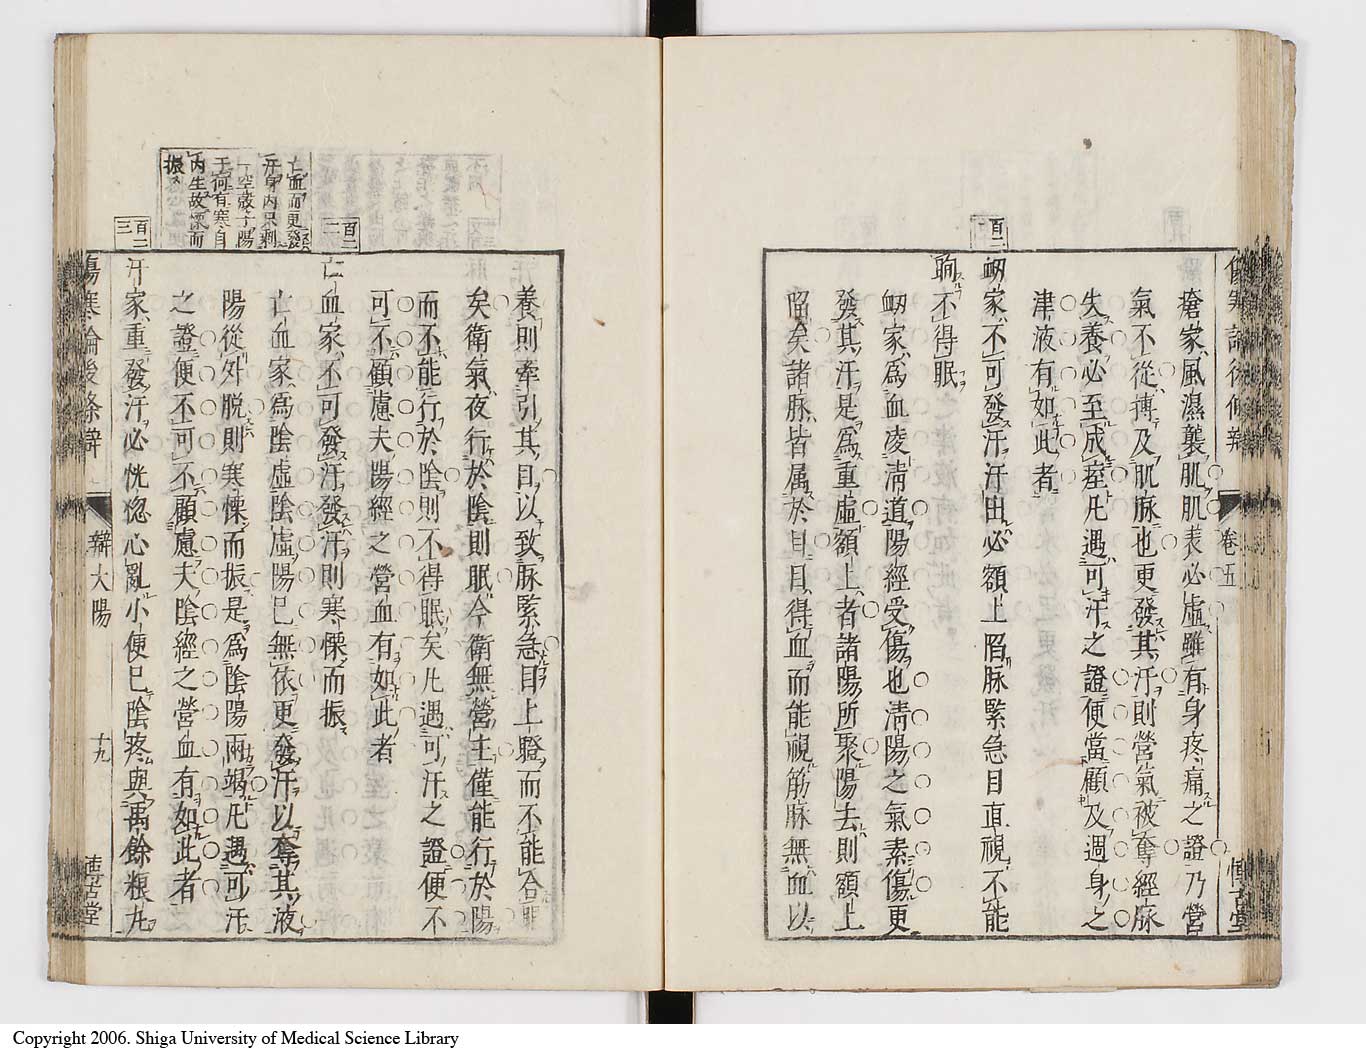 傷寒論後條辨
卷五
博古堂
瘡家風濕襲肌肌表必虛雖有身疼痛之證乃營
氣不從搏及肌脉也更發其汗則營氣被奪經脉
失養必至成痓凡遇可汗之證便當顧及週身之
津液有如此者
百二
衂家不可發汗汗出必額上陷脉緊急目直視不能
眴不得眠
衂家為血凌清道陽經受傷也清陽之氣素傷更
發其汗是為重虛額上者諸陽所聚陽去則額上
陷矣諸脉皆属於目目得血而能視筋脉無血以
養則牽引其目以致脉緊急目上瞪而不能合眼
矣衛氣夜行於陰則眠今衛無營主僅能行於陽
而不能行於陰則不得眠矣凡遇可汗之證便不
可不顧慮夫陽經之營血有如此者
百二二
亡血家不可發汗發汗則寒慄而振
亡血而更發
汗身內只剩
一空殼子陽
于何有寒自
內生故慄而
振
亡血家為陰虛陰虛陽已無依更發汗以奪其液
陽從外脫則寒慄而振是為陰陽兩竭凡遇可汗
之證便不可不顧慮夫陰經之營血有如此者
百二三
汗家重發汗必恍惚心亂小便已陰疼與禹餘粮丸
傷寒論後條辨
辯太陽
十九
博古堂